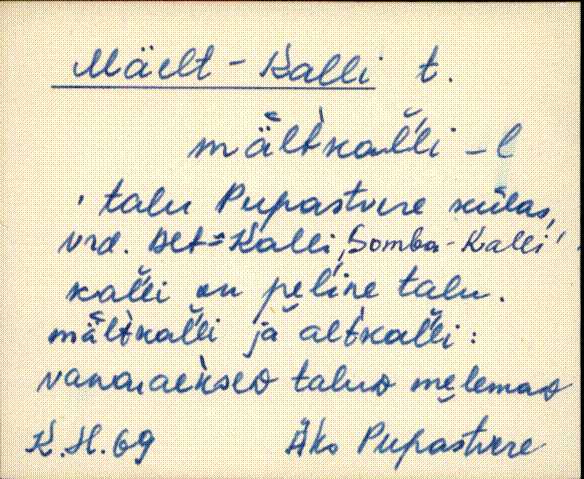 Mäelt-Kalli t.
mältkalli -l
talu Pupastvere külas,
vrd. Alt-Kalli, Somba-Kalli
kalli on peline talu.
mältkalli ja altkalli:
vanaaeksed talud mēlemad
K.H.69 Äks Pupastvere